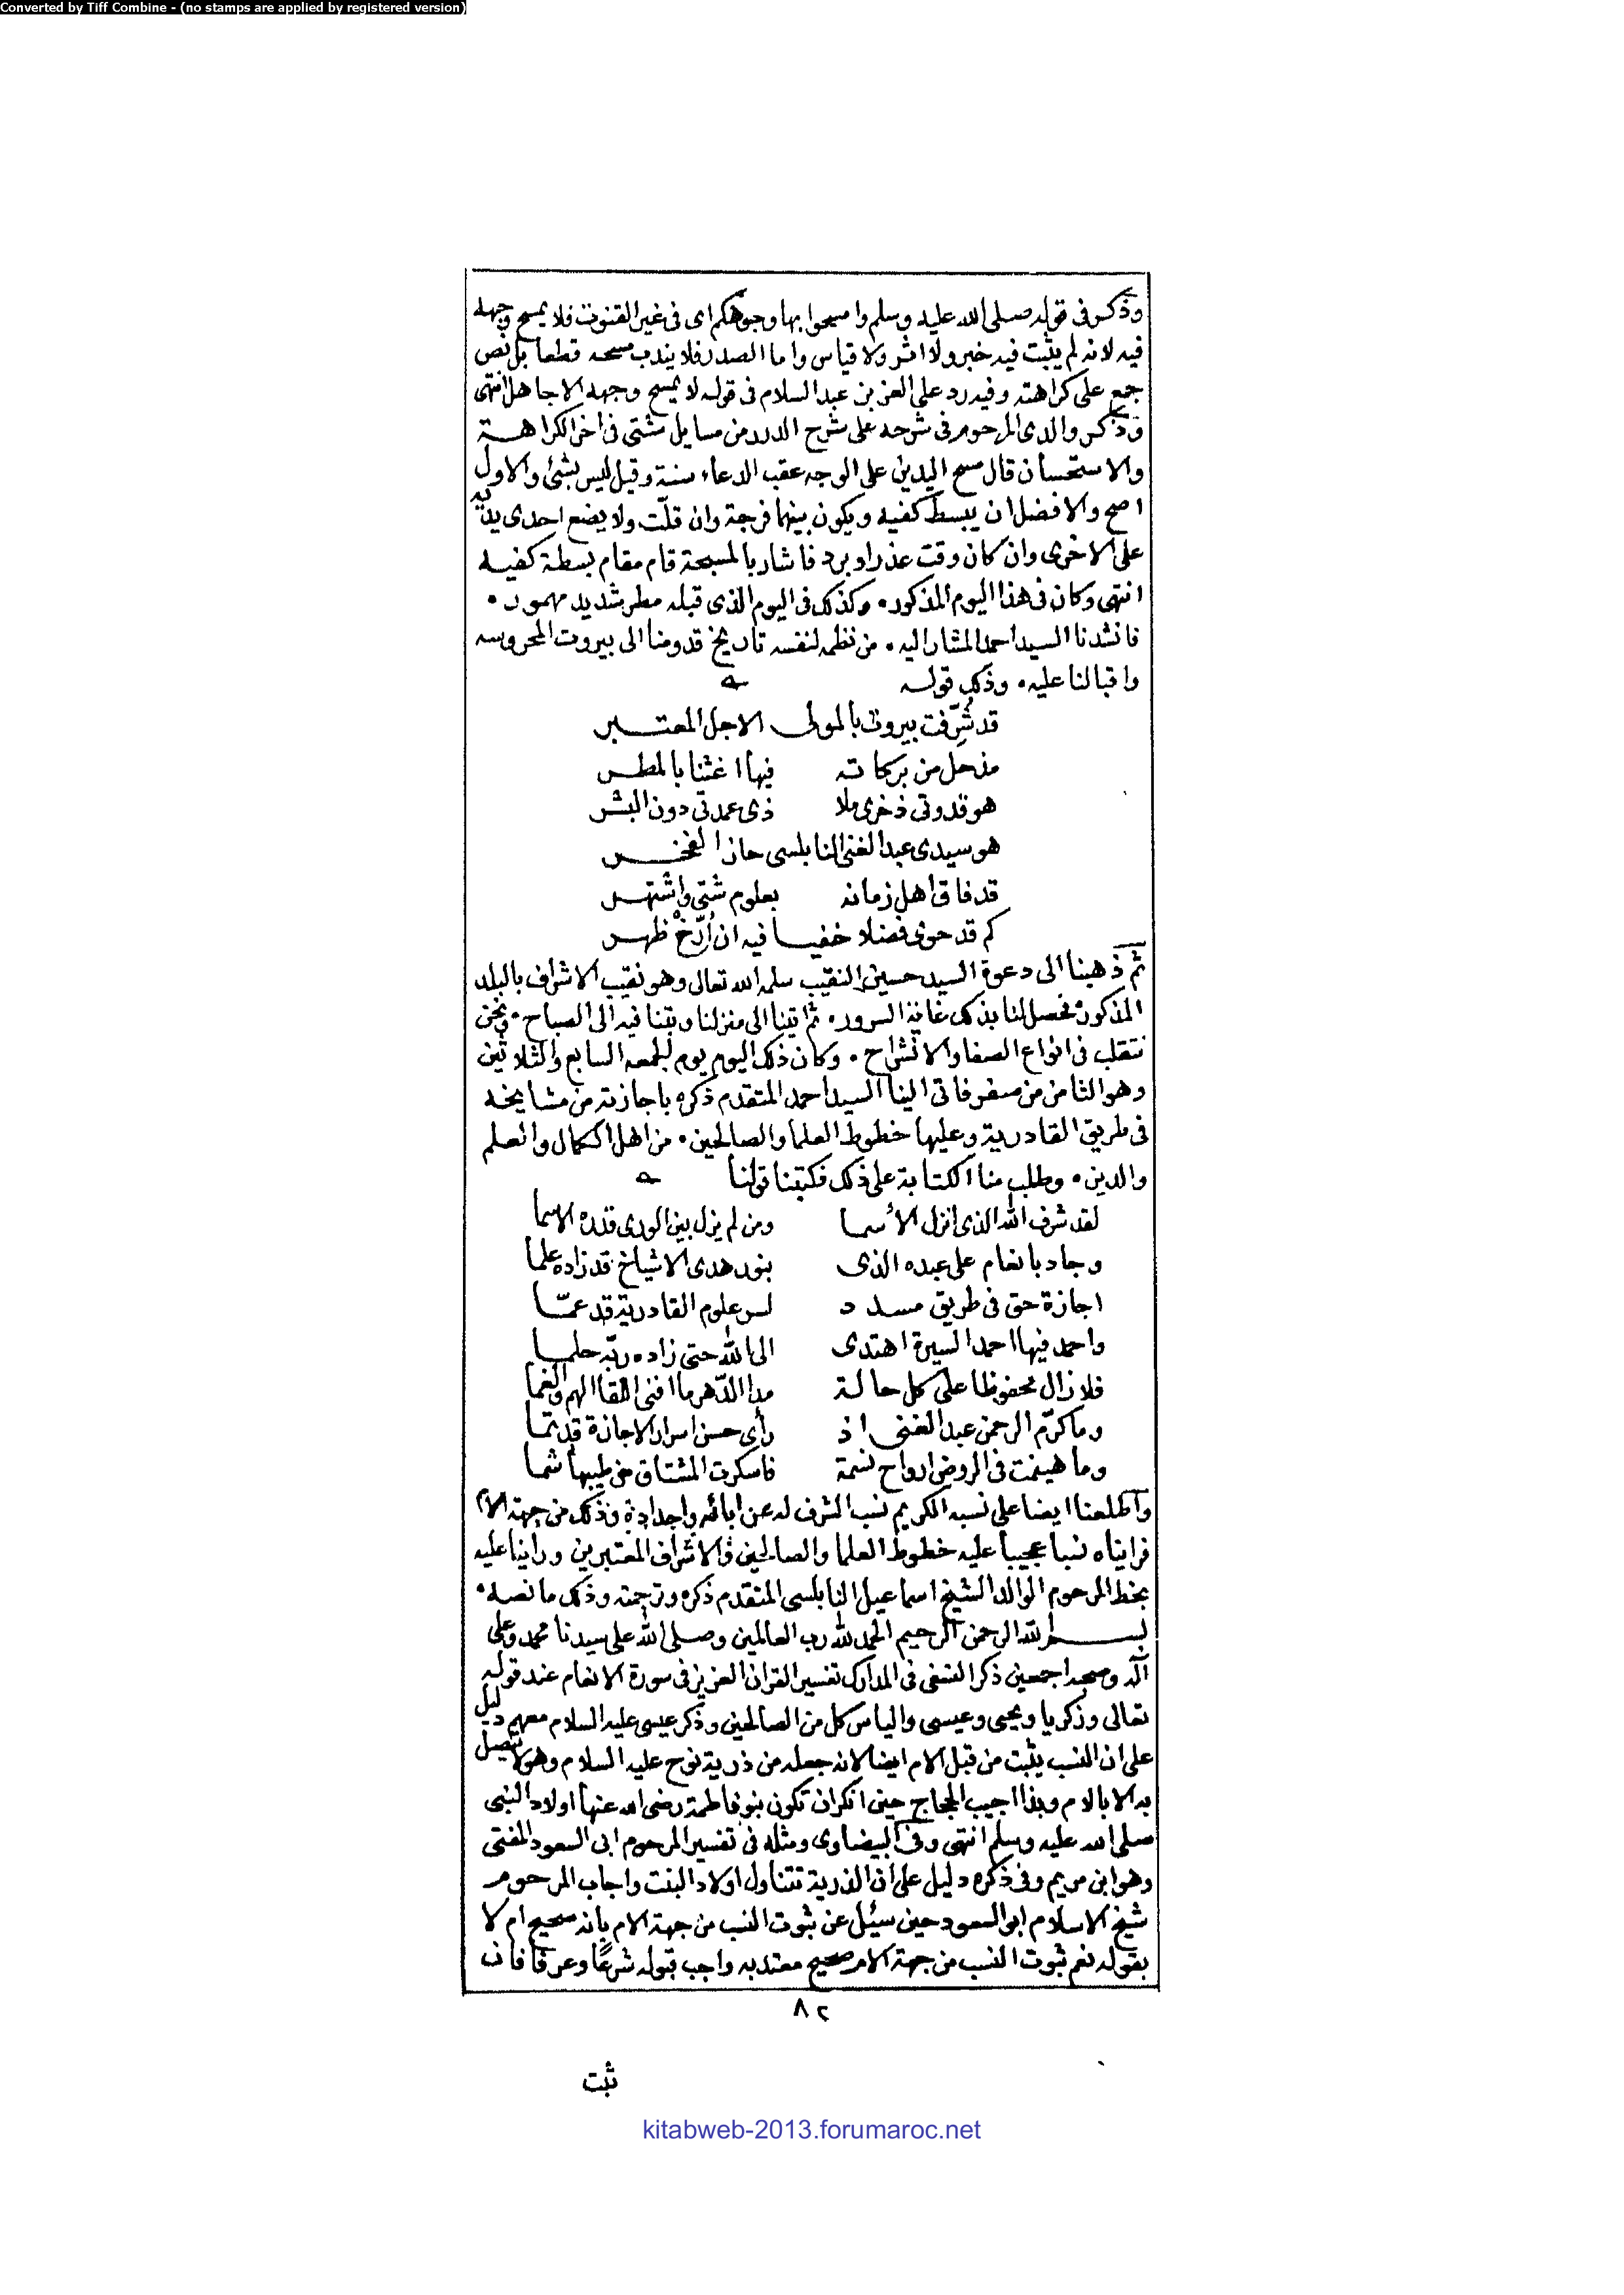 Converted by Tiff Combine - (no stamps are applied by registered version)
وذكر في قوله صلى الله عليه وسلم وامسحوا بها وجوهكم اى في غير القنوت فلا يمسح وجهه
فيه لانه لم يثبت فيه خبر ولا اثر ولا قياس واما الصدر فلا يندب مسحه قطعا بل نص
جمع على كراهته وفيه رد على العز بن عبد السلام في قوله لا يمسح وجهه الا جاهل انتهى
وذكر والدى المرحوم في شرحه على شرح الدرر من مسايل شتى في اخر الكراهة
والاستحسان قال مسح اليدين على الوجه عقب الدعاء سنة وقيل ليس بشئ والاول
اصح والافضل ان يبسط كفيه ويكون بينهما فرجة وان قلّت ولا يضع احدى يديه
على الاخرى وان كان وقت عذر او برد فاشار بالمسبحة قام مقام بسطة كفيه
انتهى وكان في هذا اليوم المذكور. وكذلك في اليوم الذى قبله مطر شديد مهمور.
فانشدنا السيد احمد المشار اليه. من نظمه لنفسه تاريخ قدومنا الى بيروت المحروسه
واقبالنا عليه. وذلك قوله
قد شُرِّفت بيروت بالمولى الاجل المعتبر
مذ حل من بركاته فيها اغثنا بالمطر
هو قدوتى ذخرى ملا ذى عمدتى دون البشر
هو سيدى عبد الغنى النابلسى حاز الفخر
قد فاق اهل زمانه بعلوم شتى واشتهر
كم قد حوى فضلا خفيا فيه ان أُرّخْ ظهر
ثم ذهبنا الى دعوة السيد حسين النقيب سلمه الله تعالى وهو نقيب الاشراف بالبلد
المذكور فحصل لنا بذلك غاية السرور. ثم اتينا الى منزلنا وبتنا فيه الى الصباح. ونحن
نتقلب في انواع الصفا والانشراح. وكان ذلك اليوم يوم الجمعه السابع والثلاثين
وهو الثامن من صفر فاتى الينا السيد احمد المتقدم ذكره باجازته من مشايخه
في طريق القادرية وعليها خطوط العلما والصالحين. من اهل الكمال والعلم
والدين. وطلب منا الكتابة على ذلك فكتبنا قولنا
لقد شرف الله الذى انزل الأسما ومن لم يزل بين الورى قدره الاسما
وجاد بانعام على عبده الذى بنور هدى الاشياخ قد زاده علما
اجازة حق في طريق مسدد لسر علوم القادرية قد عمّا
واحمد فيها احمد السيرة اهتدى الى الله حتى زاده ربّه حلما
فلا زال محفوظا على كل حالة مدا الدّهر ما افنى اللقا الهم والغما
وما كرّم الرحمن عبد الغنى اذ رأى حسن اسرار الاجازة قد تما
وما هيمنت في الروض ارواح نسمة فاسكرت المشتاق من طيبها شما
واطلعنا ايضا على نسبه الكريم نسب الشرف له عن ابائه واجداده وذلك من جهة الام
فرايناه نسبا عجيبا عليه خطوط العلما والصالحين والاشراف المعتبرين وراينا عليه
بخط المرحوم الوالد الشيخ اسماعيل النابلسى المتقدم ذكره وترجمته وذلك ما نصه.
بسم الله الرحمن الرحيم الحمد لله رب العالمين وصلى الله على سيدنا محمد وعلى
آله وصحبه اجمعين ذكر النسفى في المدارك تفسير القران العزيز في سورة الانعام عند قوله
تعالى وزكريا ويحيى وعيسى والياس كل من الصالحين وذكر عيسى عليه السلام معهم دليل
على ان النسب يثبت من قبل الام ايضا لانه جعله من ذرية نوح عليه السلام وهو لا يتصل
به الا بالام وبذا اجيب الحجاج حين انكر ان تكون بنو فاطمة رضى الله عنها اولاد النبى
صلى الله عليه وسلم انتهى وفى البيضاوى ومثله في تفسير المرحوم ابى السعود المفتى
وهو ابن مريم وفى ذكره دليل على ان الذرية تتناول اولاد البنت واجاب المرحوم
شيخ الاسلام ابى السعود حين سئل عن ثبوت النسب من جهة الام بانه صحيح ام لا
بقوله نعم ثبوت النسب من جهة الام صحيح معتد به واجب قبوله شرعًا وعرفا فان
٨٢
ثبت
kitabweb-2013.forumaroc.net